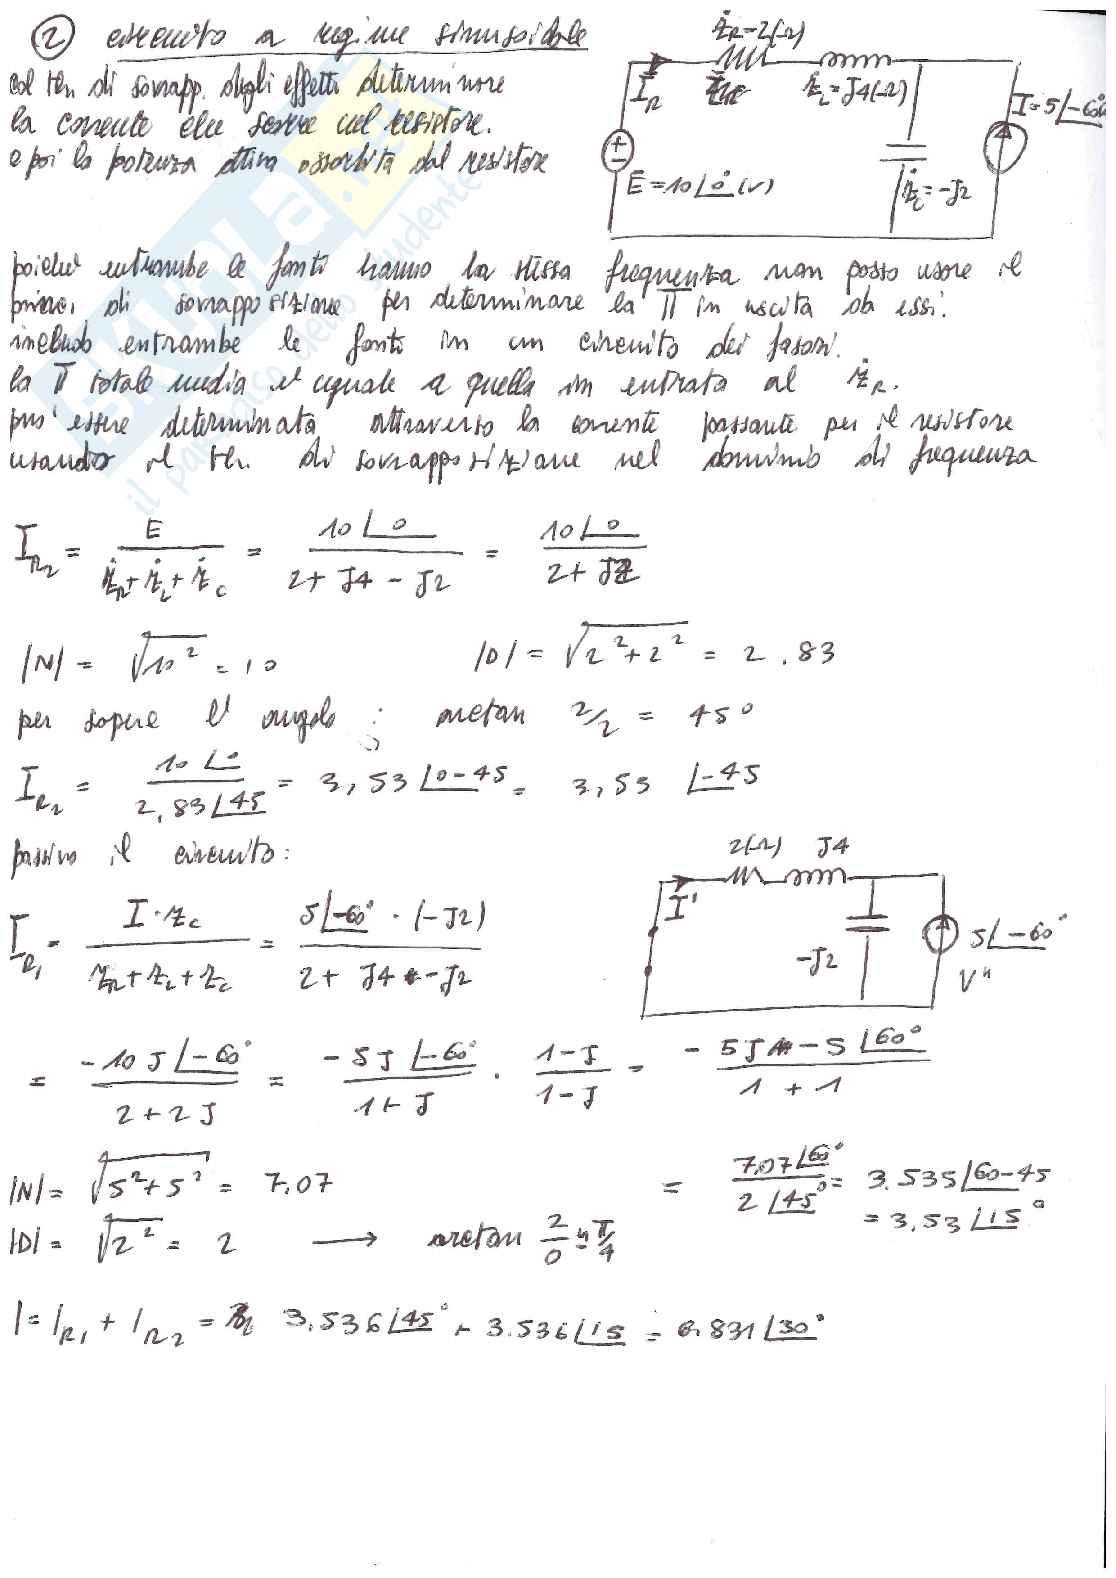 2 circuito a regime sinusoidale
col th. di sovrapp. degli effetti determinare
la corrente che scorre nel resistore.
e poi la potenza attiva assorbita dal resistore
Ż_R=2(Ω)
Ż_L=J4(Ω)
I_R
I=5∠-60°
E=10∠0° (V)
Ż_C=-J2
SKUOLA.net
il paradiso dello studente
poiché entrambe le fonti hanno la stessa frequenza non posso usare il
princ. di sovrapposizione per determinare la P in uscita da essi.
includo entrambe le fonti in un circuito dei fasori.
la P totale media è uguale a quella in entrata al Ż_R.
può essere determinata attraverso la corrente passante per il resistore
usando il th. di sovrapposizione nel dominio di frequenza
I_R2 = E / (Ż_R + Ż_L + Ż_C) = 10∠0 / (2 + J4 - J2) = 10∠0 / (2 + J2)
|N| = √10² = 10 |D| = √2²+2² = 2.83
per sapere l'angolo: arctan 2/2 = 45°
I_R2 = 10∠0 / 2,83∠45 = 3,53∠0-45 = 3,53 ∠-45
passivo il circuito:
2(Ω) J4
I'
-J2
5∠-60°
V"
I_R1 = I·Z_C / (Z_R + Z_L + Z_C) = 5∠-60° · (-J2) / (2 + J4 - J2)
= -10J∠-60° / (2+2J) = -5J∠-60° / (1+J) · (1-J) / (1-J) = - 5J - 5∠60° / (1 + 1)
|N| = √5²+5² = 7,07
= 7,07∠60° / 2∠45° = 3.535∠60-45
= 3,53∠15°
|D| = √2² = 2 → arctan 2/0 = π/4
I = I_R1 + I_R2 = 3.536∠45° + 3.536∠15 = 6.831∠30°